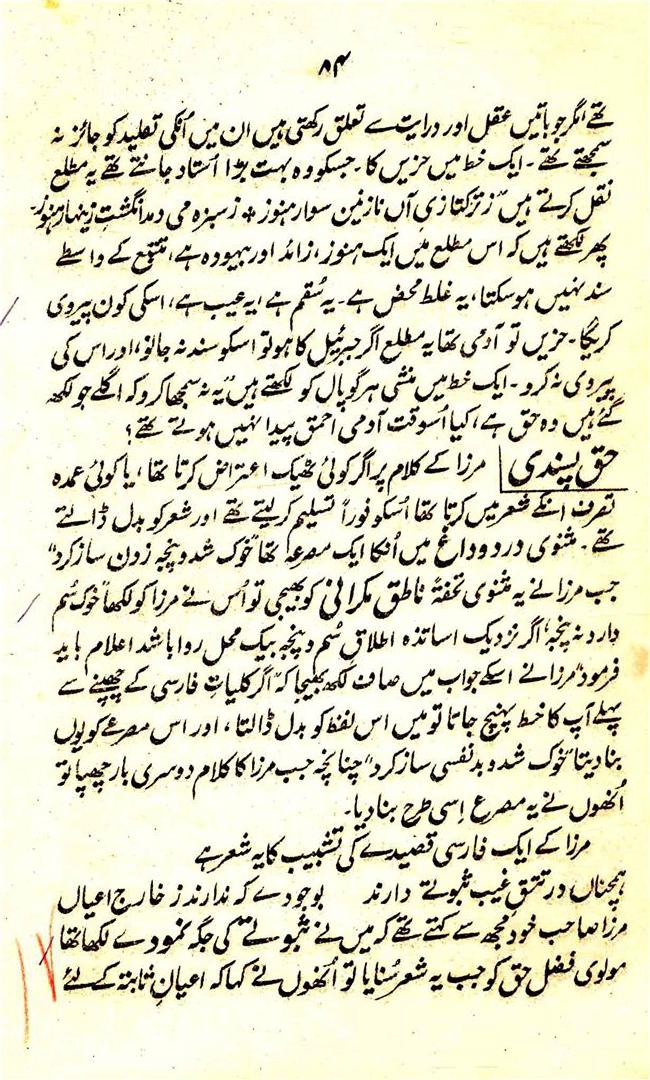 ۸۴
تھے مگر جو باتیں عقل اور درایت سے تعلق رکھتی ہیں ان میں اُنکی تقلید کو جائز نہ
سمجھتے تھے۔ ایک خط میں حزیں کا۔ جسکو وہ بہت بڑا اُستاد جانتے تھے یہ مطلع
نقل کرتے ہیں "ز ترکتازیِ آں نازنین سوار ہنوز * ز سبزہ می دمد انگشتِ زینہار ہنوز۔
پھر لکھتے ہیں کہ اس مطلع میں ایک ہنوز، زائد اور بیہودہ ہے، تتبع کے واسطے
سند نہیں ہو سکتا، یہ غلط محض ہے۔ یہ سُقم ہے، یہ عیب ہے، اسکی کون پیروی
کریگا۔ حزیں تو آدمی تھا یہ مطلع اگر جبرئیل کا ہو تو اسکو سند نہ جانو، اور اس کی
پیروی نہ کرو۔ ایک خط میں منشی ہر گوپال کو لکھتے ہیں "یہ نہ سمجھا کرو کہ اگلے جو لکھ
گئے ہیں وہ حق ہے، کیا اُسوقت آدمی احمق پیدا نہیں ہوتے تھے؟
حق پسندی مرزا کے کلام پر اگر کوئی ٹھیک اعتراض کرتا تھا، یا کوئی عمدہ
تصرف انکے شعر میں کرتا تھا اُسکو فوراً تسلیم کر لیتے تھے اور شعر کو بدل ڈالتے
تھے۔ مثنوی درد و داغ میں اُنکا ایک مصرعہ تھا "خوک شد و پنجہ زدن ساز کرد"
جب مرزا نے یہ مثنوی تحفۃً ناطق مکرانی کو بھیجی تو اُس نے مرزا کو لکھا "خوک سُم
دارد نہ پنجہ، اگر نزدیک اساتذہ اطلاقِ سُم و پنجہ بیک محل روا باشد اعلام باید
فرمود" مرزا نے اسکے جواب میں صاف لکھ بھیجا کہ "اگر کلیاتِ فارسی کے چھپنے سے
پہلے آپ کا خط پہنچ جاتا تو میں اس لفظ کو بدل ڈالتا، اور اس مصرعے کو یوں
بنا دیتا "خوک شد و بدنفسی ساز کرد" چنانچہ جب مرزا کا کلام دوسری بار چھپا تو
اُنھوں نے یہ مصرع اِسی طرح بنا دیا۔
مرزا کے ایک فارسی قصیدے کی تشبیب کا یہ شعر ہے
ہمچناں در تتقِ غیب ثبوتے دارند بوجودے کہ ندارند ز خارج اعیاں
مرزا صاحب خود مجھ سے کہتے تھے کہ میں نے ثبوتے کی جگہ نمودے لکھا تھا
مولوی فضل حق کو جب یہ شعر سُنایا تو اُنھوں نے کہا کہ اعیانِ ثابتہ کے لئے